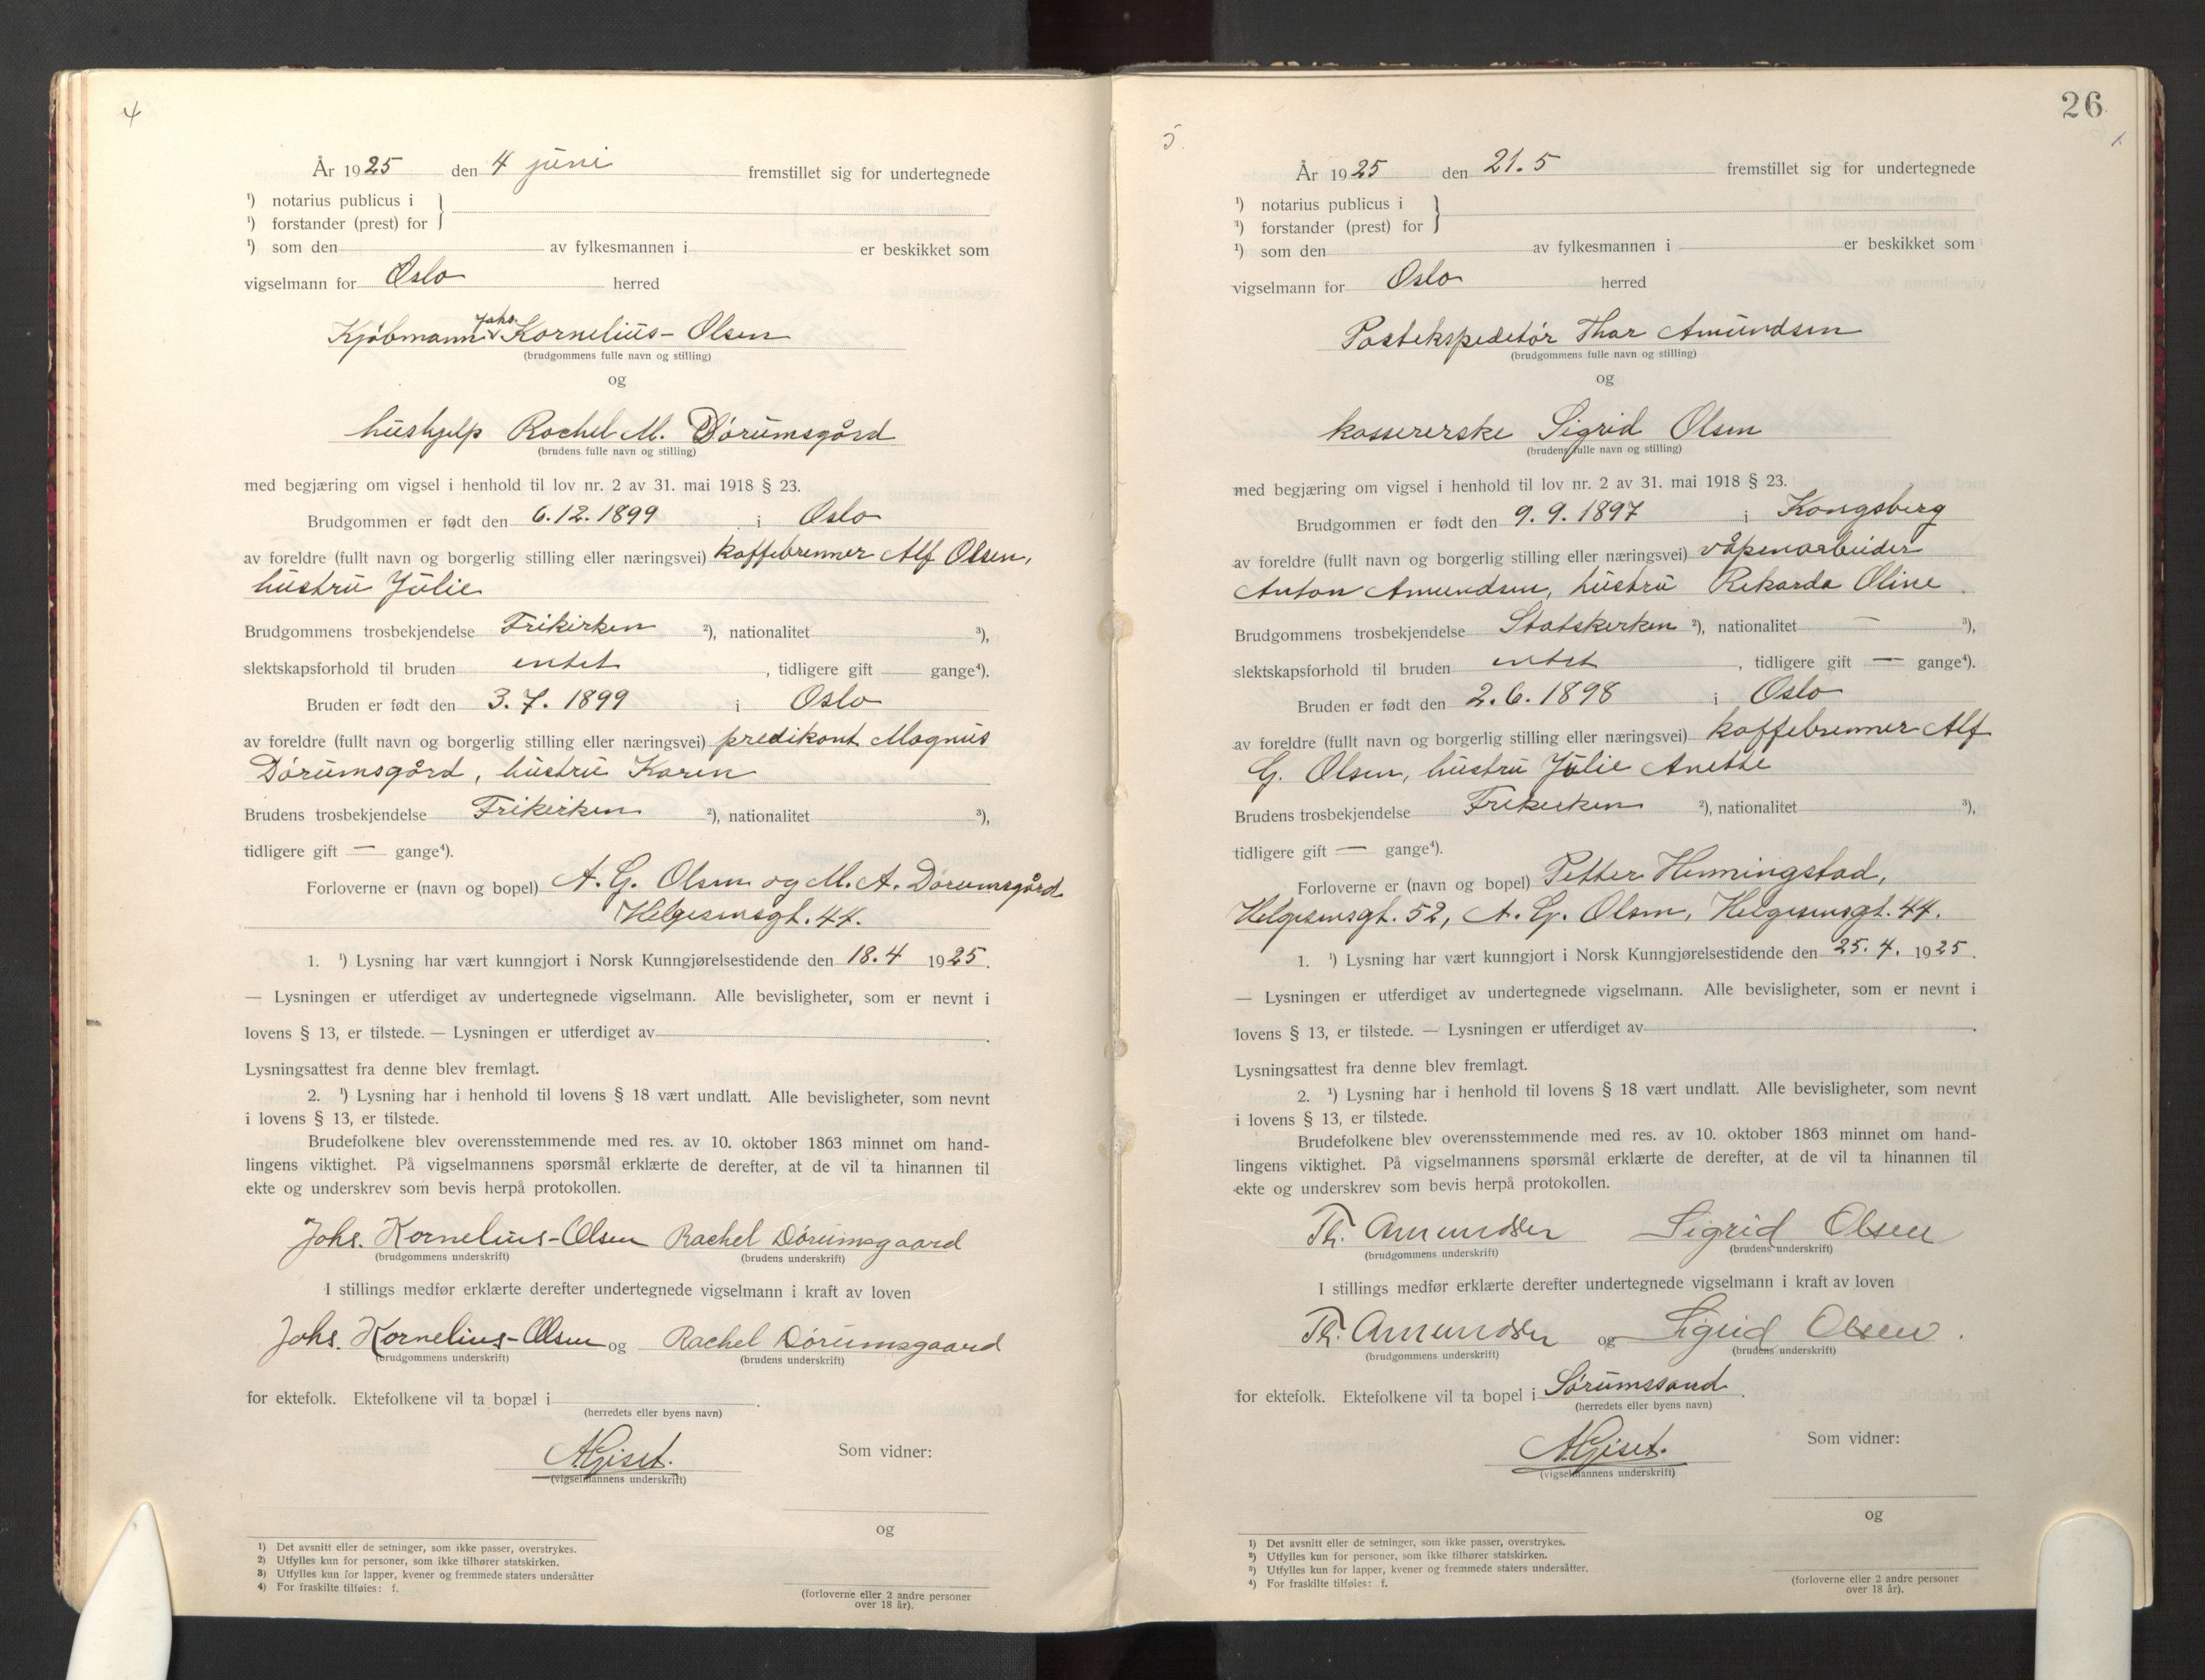 4
År 1925 den 4 juni fremstillet sig for undertegnede
¹) notarius publicus i
¹) forstander (prest) for
¹) som den av fylkesmannen i er beskikket som
vigselmann for Oslo herred
Kjøbmann Johs. Kornelius-Olsen
(brudgommens fulle navn og stilling)
og
hushjelp Rachel M. Dørumsgård
(brudens fulle navn og stilling)
med begjæring om vigsel i henhold til lov nr. 2 av 31. mai 1918 § 23.
Brudgommen er født den 6.12.1899 i Oslo
av foreldre (fullt navn og borgerlig stilling eller næringsvei) kaffebrenner Alf Olsen,
hustru Julie
Brudgommens trosbekjendelse Frikirken ²), nationalitet ³),
slektskapsforhold til bruden intet, tidligere gift gange⁴).
Bruden er født den 3.7.1899 i Oslo
av foreldre (fullt navn og borgerlig stilling eller næringsvei) predikant Magnus
Dørumsgård, hustru Karen
Brudens trosbekjendelse Frikirken ²), nationalitet ³),
tidligere gift — gange⁴).
Forloverne er (navn og bopel) A. G. Olsen og M. A. Dørumsgård
Helgesensgt. 44.
1. ¹) Lysning har vært kunngjort i Norsk Kunngjørelsestidende den 18.4 1925.
— Lysningen er utferdiget av undertegnede vigselmann. Alle bevisligheter, som er nevnt i
lovens § 13, er tilstede. — Lysningen er utferdiget av .
Lysningsattest fra denne blev fremlagt.
2. ¹) Lysning har i henhold til lovens § 18 vært undlatt. Alle bevisligheter, som nevnt
i lovens § 13, er tilstede.
Brudefolkene blev overensstemmende med res. av 10. oktober 1863 minnet om hand-
lingens viktighet. På vigselmannens spørsmål erklærte de derefter, at de vil ta hinannen til
ekte og underskrev som bevis herpå protokollen.
Johs. Kornelius-Olsen Rachel Dørumsgaard
(brudgommens underskrift) (brudens underskrift)
I stillings medfør erklærte derefter undertegnede vigselmann i kraft av loven
Johs. Kornelius-Olsen og Rachel Dørumsgaard
(brudgommens underskrift) (brudens underskrift)
for ektefolk. Ektefolkene vil ta bopæl i .
(herredets eller byens navn)
A Giset.
(vigselmannens underskrift)
Som vidner:
og
(forloverne eller 2 andre personer
over 18 år).
1) Det avsnitt eller de setninger, som ikke passer, overstrykes.
2) Utfylles kun for personer, som ikke tilhører statskirken.
3) Utfylles kun for lapper, kvener og fremmede staters undersåtter
4) For fraskilte tilføies: f.
26
5
År 1925 den 21.5 fremstillet sig for undertegnede
¹) notarius publicus i
¹) forstander (prest) for
¹) som den av fylkesmannen i er beskikket som
vigselmann for Oslo herred
Postekspeditør Thor Amundsen
(brudgommens fulle navn og stilling)
og
kassererske Sigrid Olsen
(brudens fulle navn og stilling)
med begjæring om vigsel i henhold til lov nr. 2 av 31. mai 1918 § 23.
Brudgommen er født den 9.9.1897 i Kongsberg
av foreldre (fullt navn og borgerlig stilling eller næringsvei) våpenarbeider
Anton Amundsen, hustru Rikarda Oline
Brudgommens trosbekjendelse Statskirken ²), nationalitet — ³),
slektskapsforhold til bruden intet, tidligere gift — gange⁴).
Bruden er født den 2.6.1898 i Oslo
av foreldre (fullt navn og borgerlig stilling eller næringsvei) kaffebrenner Alf
G. Olsen, hustru Julie Anette
Brudens trosbekjendelse Frikirken ²), nationalitet ³),
tidligere gift — gange⁴).
Forloverne er (navn og bopel) Petter Henningstad,
Helgesensgt. 52, A. G. Olsen, Helgesensgt. 44.
1. ¹) Lysning har vært kunngjort i Norsk Kunngjørelsestidende den 25.4. 1925.
— Lysningen er utferdiget av undertegnede vigselmann. Alle bevisligheter, som er nevnt i
lovens § 13, er tilstede. — Lysningen er utferdiget av .
Lysningsattest fra denne blev fremlagt.
2. ¹) Lysning har i henhold til lovens § 18 vært undlatt. Alle bevisligheter, som nevnt
i lovens § 13, er tilstede.
Brudefolkene blev overensstemmende med res. av 10. oktober 1863 minnet om hand-
lingens viktighet. På vigselmannens spørsmål erklærte de derefter, at de vil ta hinannen til
ekte og underskrev som bevis herpå protokollen.
Th. Amundsen Sigrid Olsen
(brudgommens underskrift) (brudens underskrift)
I stillings medfør erklærte derefter undertegnede vigselmann i kraft av loven
Th. Amundsen og Sigrid Olsen.
(brudgommens underskrift) (brudens underskrift)
for ektefolk. Ektefolkene vil ta bopel i Sørumssand.
(herredets eller byens navn)
A Giset.
(vigselmannens underskrift)
Som vidner:
og
(forloverne eller 2 andre personer
over 18 år).
1) Det avsnitt eller de setninger, som ikke passer, overstrykes.
2) Utfylles kun for personer, som ikke tilhører statskirken.
3) Utfylles kun for lapper, kvener og fremmede staters undersåtter.
4) For fraskilte tilføies: f.